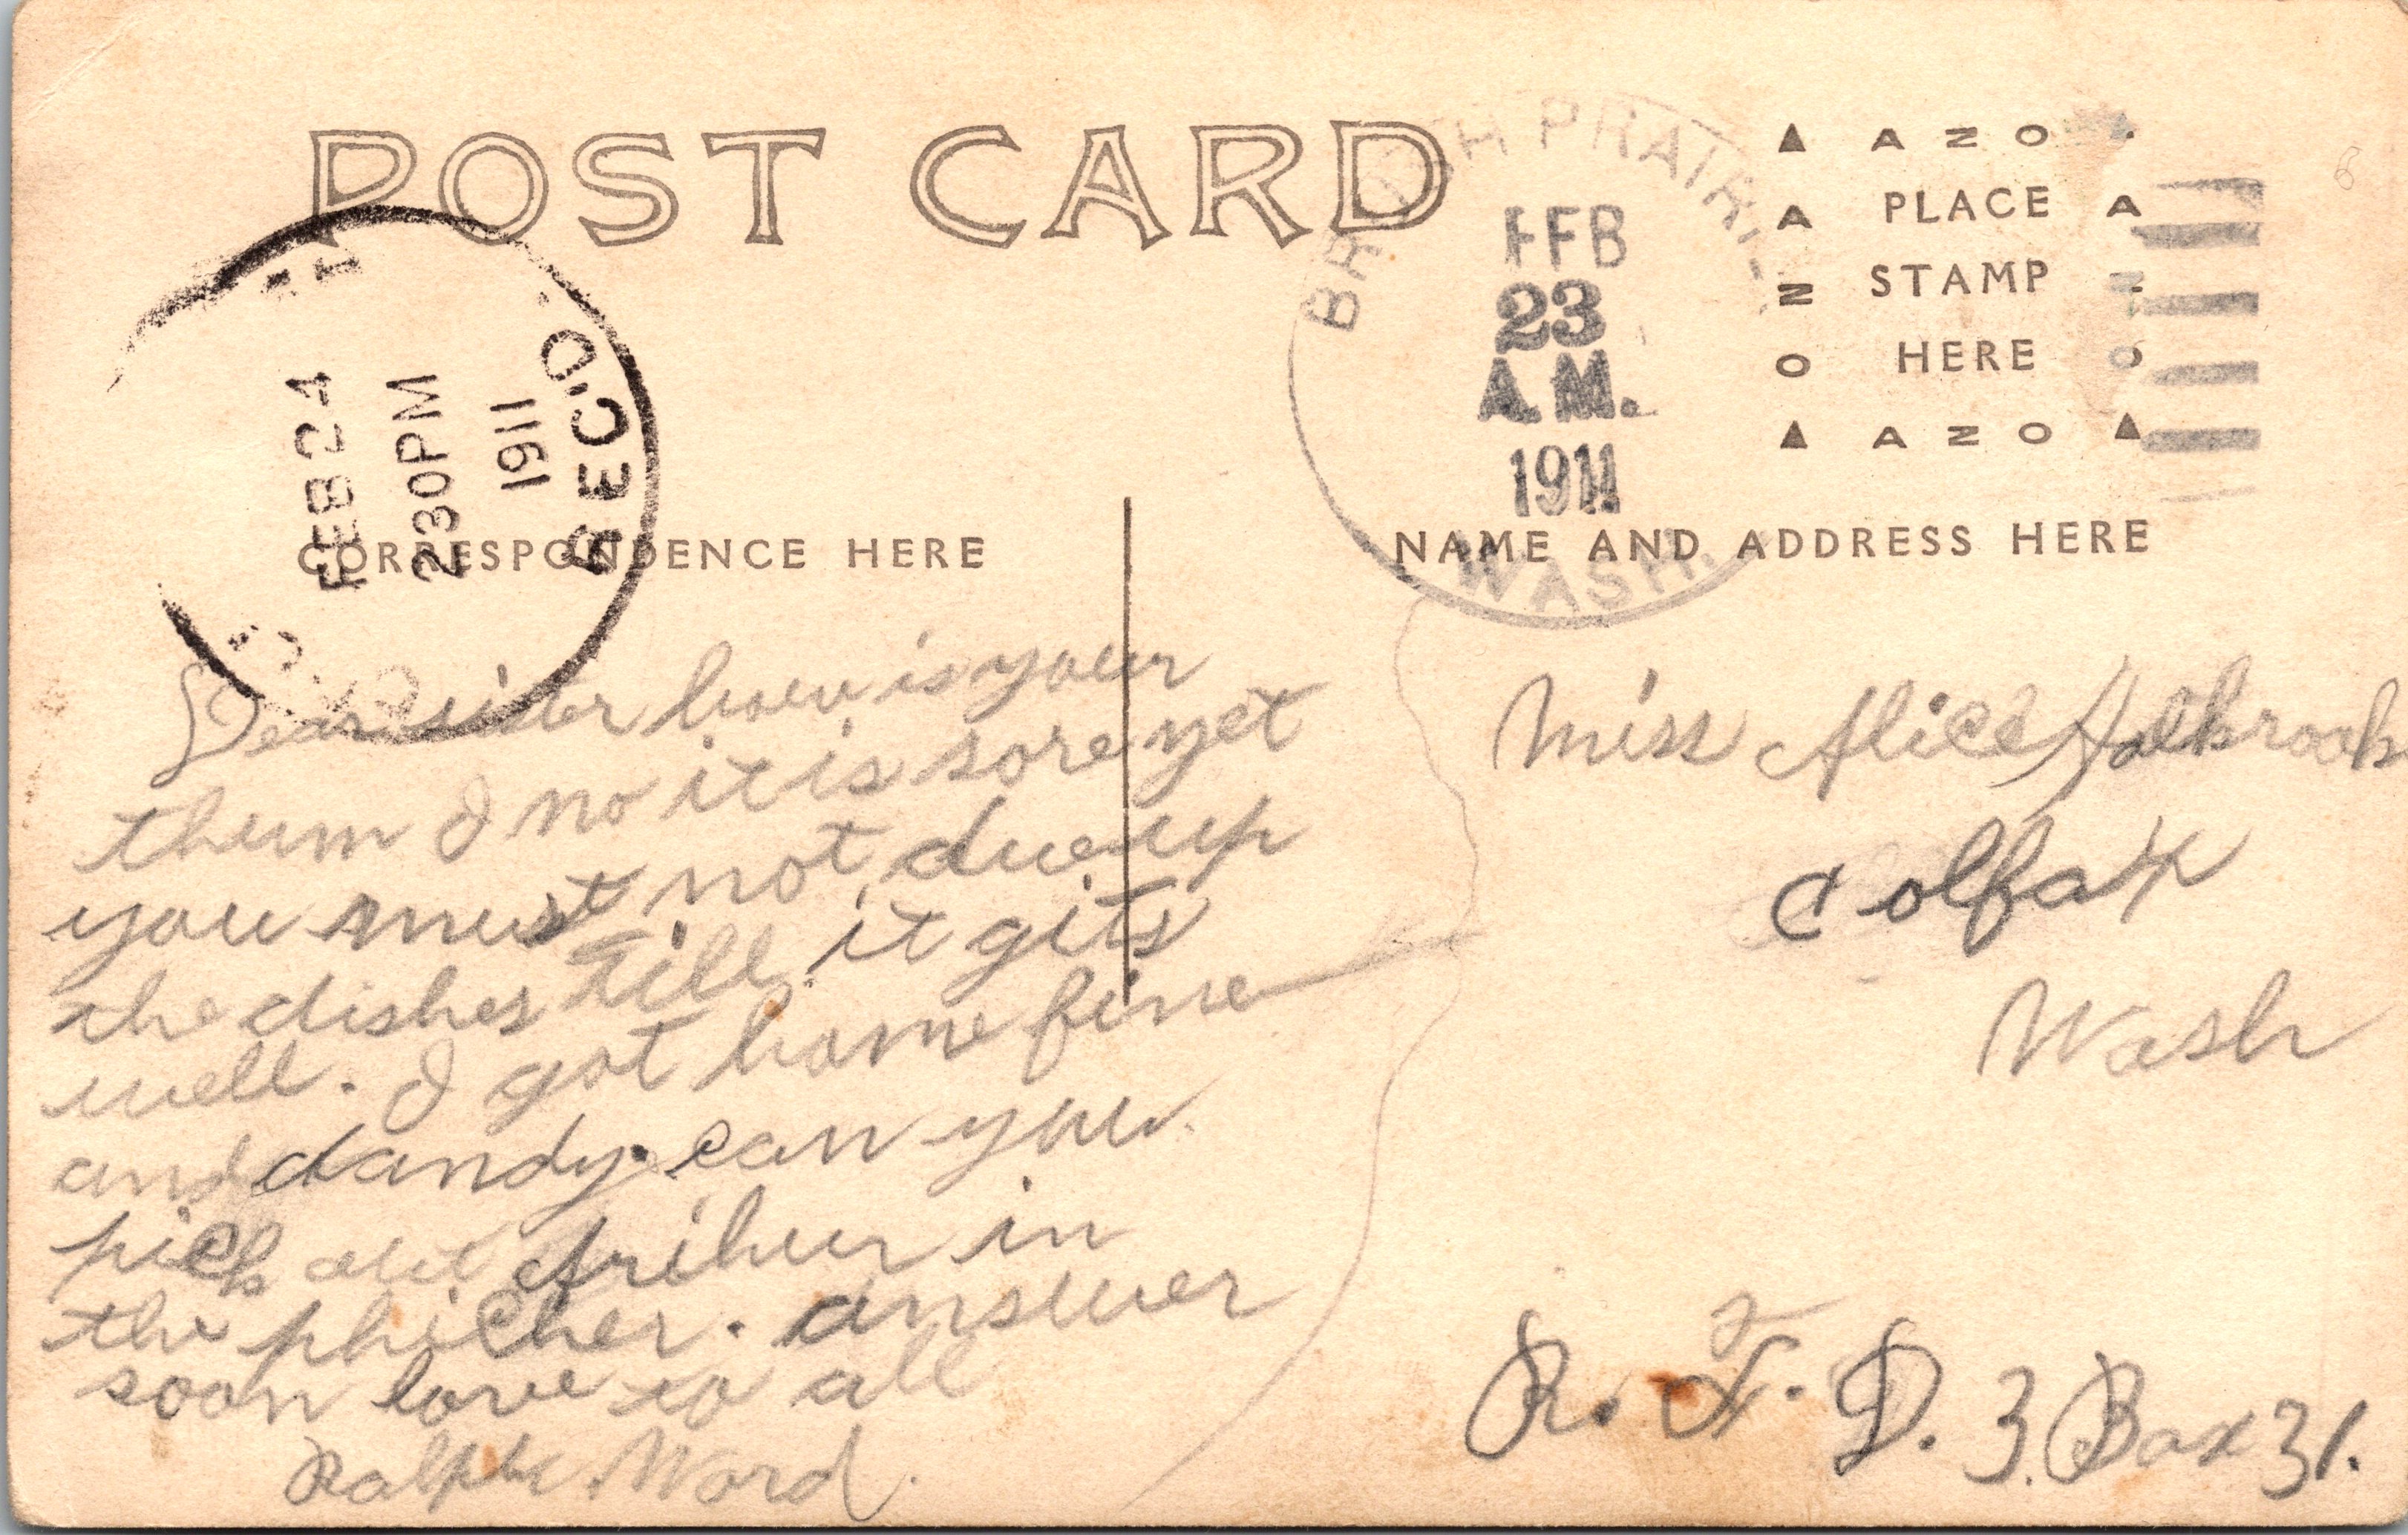 POST CARD
BRUSH PRAIRIE
FEB
23
A.M.
1911
WASH.
▲ A Z O
A PLACE A
N STAMP N
O HERE O
▲ A Z O ▲
FEB 24
230PM
1911
REC'D
CORRESPONDENCE HERE
NAME AND ADDRESS HERE
Dear sister how is your
thum I no it is sore yet
you must not due up
the dishes till it gits
well. I got home fine
and dandy. can you
pick out in
the phicher. answer
soon love to all
Ralph Ward.
Miss Alice Holbrook
Colfax
Wash
R. F. D. 3. Box 31.